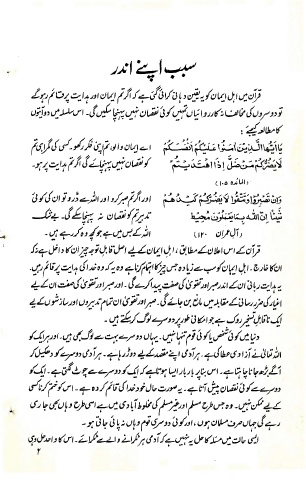 سبب اپنے اندر
قرآن میں اہل ایمان کو یہ یقین دہانی کرائی گئی ہے کہ اگر تم ایمان اور ہدایت پر قائم رہو گے
تو دوسروں کی مخالفانہ کارروائیاں تمہیں کوئی نقصان نہیں پہنچا سکیں گی۔ اس سلسلہ میں دو آیتوں
کا مطالعہ کیجئے:
يَا أَيُّهَا الَّذِينَ آمَنُوا عَلَيْكُمْ أَنْفُسَكُمْ
لَا يَضُرُّكُمْ مَنْ ضَلَّ إِذَا اهْتَدَيْتُمْ
(المائدہ ۱۰۵)
اے ایمان والو، تم اپنی فکر رکھو۔ کسی کی گمراہی تم
کو نقصان نہیں پہنچائے گی اگر تم ہدایت پر ہو۔
وَإِنْ تَصْبِرُوا وَتَتَّقُوا لَا يَضُرُّكُمْ كَيْدُهُمْ
شَيْئًا إِنَّ اللَّهَ بِمَا يَعْمَلُونَ مُحِيطٌ
(آل عمران ۱۲۰)
اور اگر تم صبر کرو اور اللہ سے ڈرو تو ان کی کوئی
تدبیر تم کو نقصان نہ پہنچا سکے گی۔ بے شک
اللہ کے بس میں ہے جو کچھ وہ کر رہے ہیں۔
قرآن کے اس اعلان کے مطابق، اہل ایمان کے لیے اصل قابل توجہ چیز ان کا داخل ہے نہ کہ
ان کا خارج۔ اہل ایمان کو سب سے زیادہ جس چیز کا اہتمام کرنا ہے وہ یہ کہ وہ خدا کی ہدایت پر قائم رہیں۔
یہ ہدایت ربانی ان کے اندر صبر اور تقویٰ کی صفت پیدا کرے گی۔ اور صبر اور تقویٰ کی صفت ان کے لیے
اغیار کی ضرر رسانی کے مقابلہ میں مانع بن جائے گی۔ صبر اور تقویٰ ان تمام تدبیروں اور سازشوں کے لیے
ایک ناقابل تسخیر روک ہے جو امکانی طور پر دوسرے لوگ کر سکتے ہیں۔
دنیا میں کوئی شخص یا کوئی قوم تنہا نہیں۔ یہاں دوسرے بہت سے لوگ بھی ہیں۔ اور ہر ایک کو
اللہ تعالیٰ نے آزادی عطا کی ہے۔ ہر آدمی اپنے مقصد کے لیے دوڑ رہا ہے۔ ہر آدمی دوسرے کو دھکیل کر
آگے بڑھ جانا چاہتا ہے۔ اس بنا پر بار بار ایسا ہوتا ہے کہ ایک کو دوسرے سے چوٹ لگتی ہے۔ ایک کو
دوسرے سے کوئی نقصان پیش آتا ہے۔ یہ صورت حال خود خدا کی قائم کردہ ہے۔ اس کو ختم کرنا کسی
کے لیے ممکن نہیں۔ وہ جس طرح مسلم اور غیر مسلم کی مخلوط آبادی میں ہے اسی طرح وہاں بھی جاری رہے
گی جہاں صرف مسلمان ہوں، اور کوئی دوسری قوم وہاں نہ پائی جاتی ہو۔
ایسی حالت میں مسئلہ کا حل یہ نہیں ہے کہ آدمی ہر ٹکرانے والے سے ٹکرائے۔ اس کا واحد حل وہی
۲